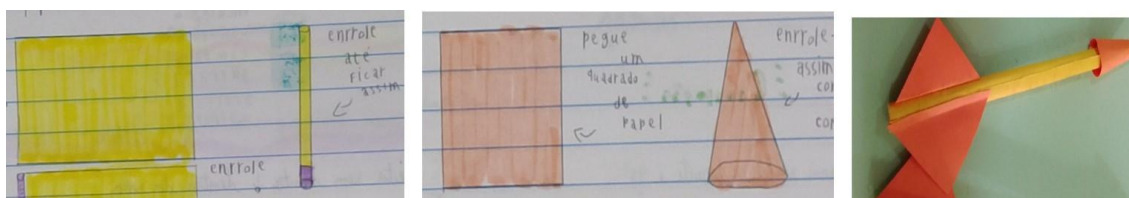 enrrole
até
ficar
assim
enrrole
pegue
um
quadrado
de
papel
enrrole
assim
con
con